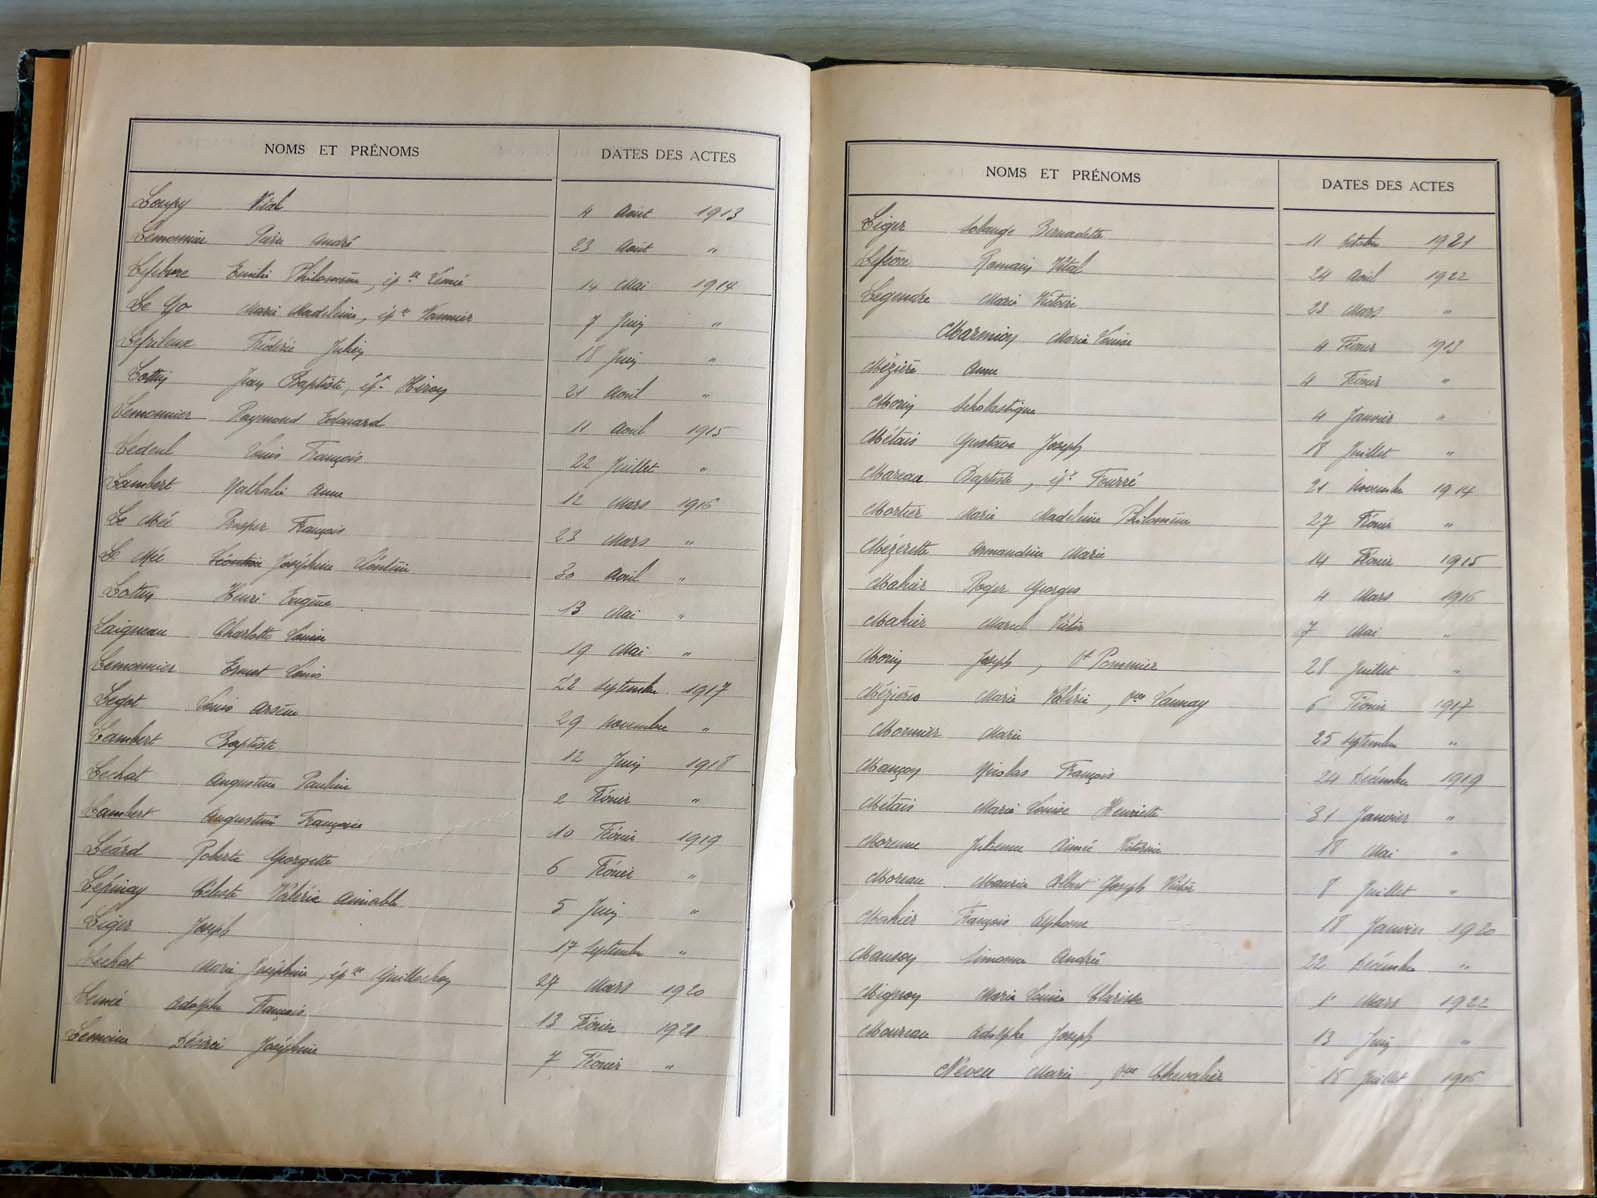 NOMS ET PRÉNOMS DATES DES ACTES
Loupy Vital 4 Août 1913
Lemonnier André 23 Août "
Lefebvre Philomène, épse Lemée 14 Mai 1914
Le Go Marie Madeleine, épse 7 Juin "
Frédéric Julien 18 Juin "
Lottin Jean Baptiste, épx 21 Avril "
Lemonnier Raymond Edouard 11 Avril 1915
Ledeul Louis François 22 Juillet "
Lambert Nathalie Anne 12 Mars 1916
Le Mée Prosper François 23 Mars "
Le Mée Joséphine Léontine 30 Avril "
Lottin Henri Eugène 13 Mai "
Laigneau Charlotte Louise 19 Mai "
Lemonnier Ernest Louis 22 Septembre 1917
Legot Louis Arsène 29 Novembre "
Lambert Baptiste 12 Juin 1918
Lechat Augustine Pauline 2 Février "
Lambert Augustine Françoise 10 Février 1919
Léard Roberte Georgette 6 Février "
Lépinay Céleste Valérie Aimable 5 Juin "
Léger Joseph 17 Septembre "
Lechat Marie Joséphine, épse 27 Mars 1920
Lemée Adolphe François 13 Février 1921
Lemoine Désiré Joséphine 7 Février "
NOMS ET PRÉNOMS DATES DES ACTES
Léger Solange Bernadette 11 Octobre 1921
Romain Vital 24 Avril 1922
Legendre Marie Victoire 23 Mars "
Marmion Marie Louise 4 Février 1913
Mézière Anne 4 Février "
Morin Scholastique 4 Janvier "
Métais Gustave Joseph 18 Juillet "
Mareau Baptiste, épx Fourré 21 Novembre 1914
Mortier Marie Madeleine Philomène 27 Février "
Mézerette Armandine Marie 14 Février 1915
Mahier Roger Georges 4 Mars 1916
Mahier Marcel Victor 7 Mai "
Morin Joseph, Vf Pommier 28 Juillet "
Mézières Marie Valérie, Vve Launay 6 Février 1917
Monnier Marie 25 Septembre "
Mançon Nicolas François 24 Décembre 1919
Métais Marie Louise Henriette 31 Janvier "
Morenne Julienne Aimée Victorine 18 Mai "
Moreau Maurice Albert Joseph Victor 8 Juillet "
Mahier François Alphonse 18 Janvier 1920
Simonne Andrée 22 Décembre "
Mignon Marie Louise Clarisse 1er Mars 1922
Moureau Adolphe Joseph 13 Juin "
Neveu Marie, Vve Chevalier 15 Juillet 1916